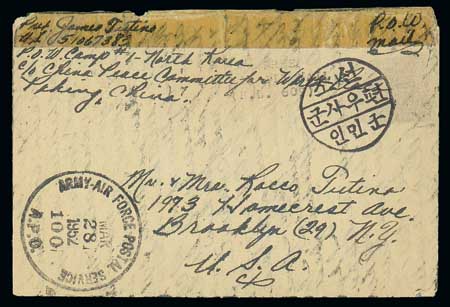 Pvt. James Tutino
U.S. 51067383
P.O.W. Camp #1-North Korea
c/o China Peace Committee for World Peace
Peking, China.
P.O.W.
mail
조선
군사우편
인민군
Mr. & Mrs. Rocco Tutino
1973 Homecrest Ave.
Brooklyn (29) N.Y.
U.S.A.
ARMY-AIR FORCE POSTAL SERVICE
MAR
28
1952
100
A.P.O.